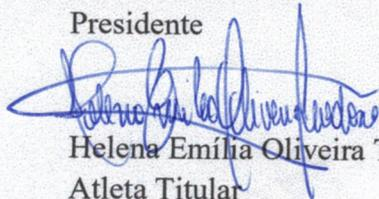 Presidente
Helena Emília Oliveira T
Atleta Titular